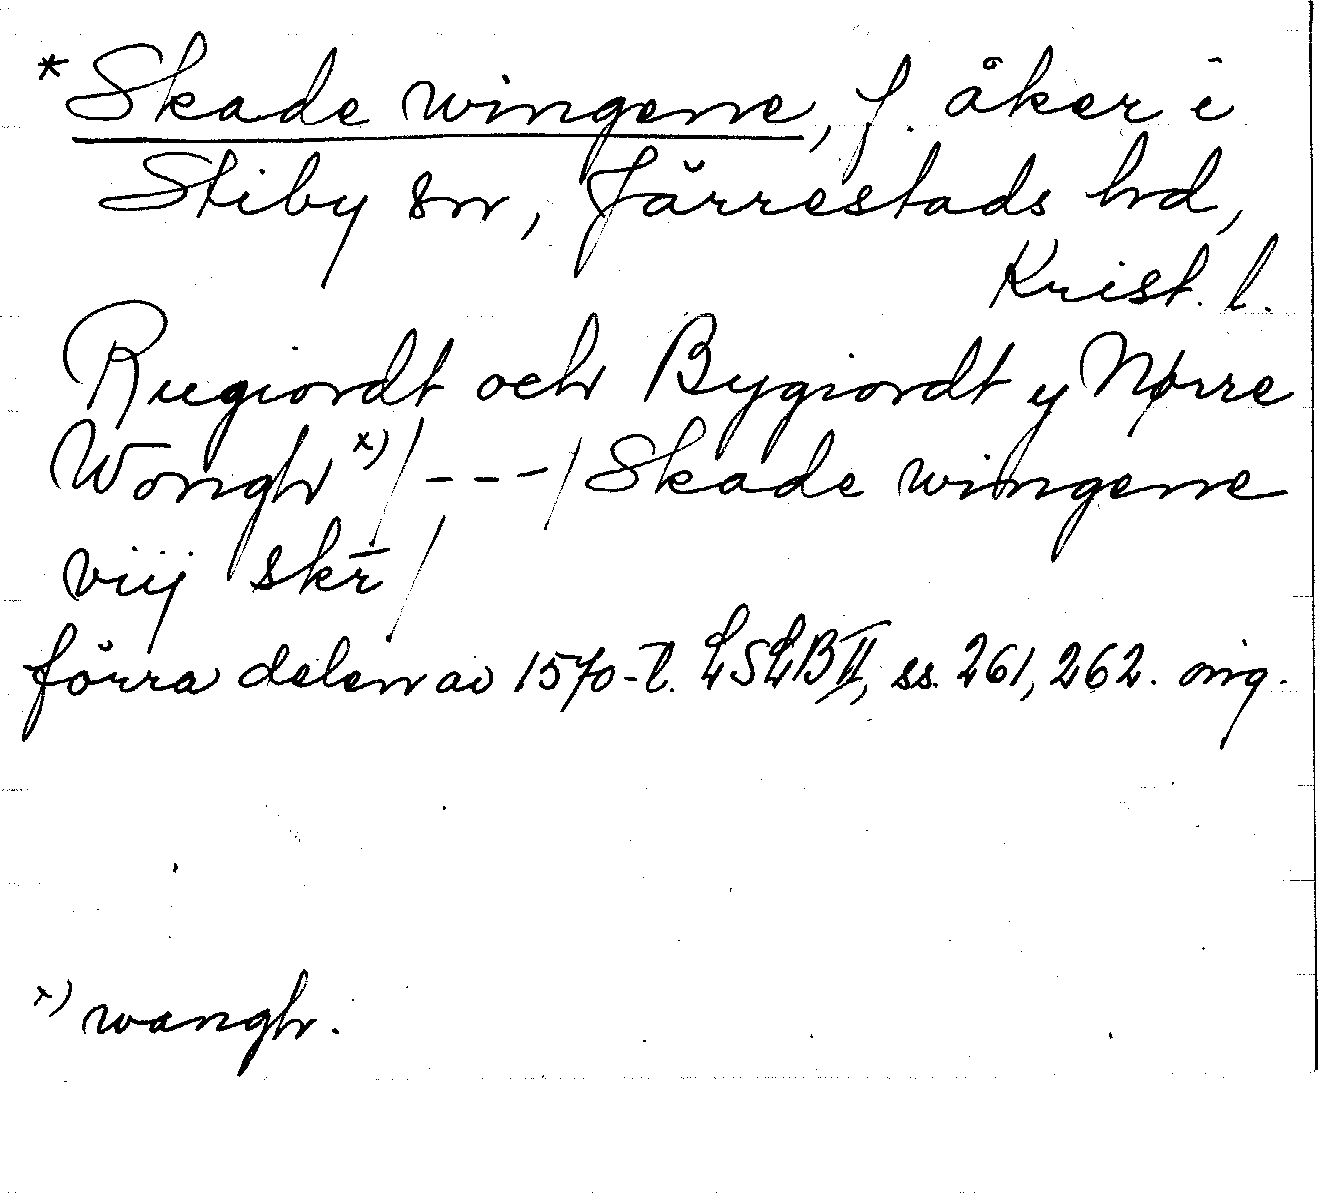 * Skade wingenne, f. åker i
Stiby sn, Järrestads hd,
Krist. l.
Rugiordt och Bygiordt y Nørre
Wongh x) / - - - / Skade wingenne
viij skr̄ /
förra delen av 1570-t. LSLB II, ss. 261, 262. orig.
x) wangh.